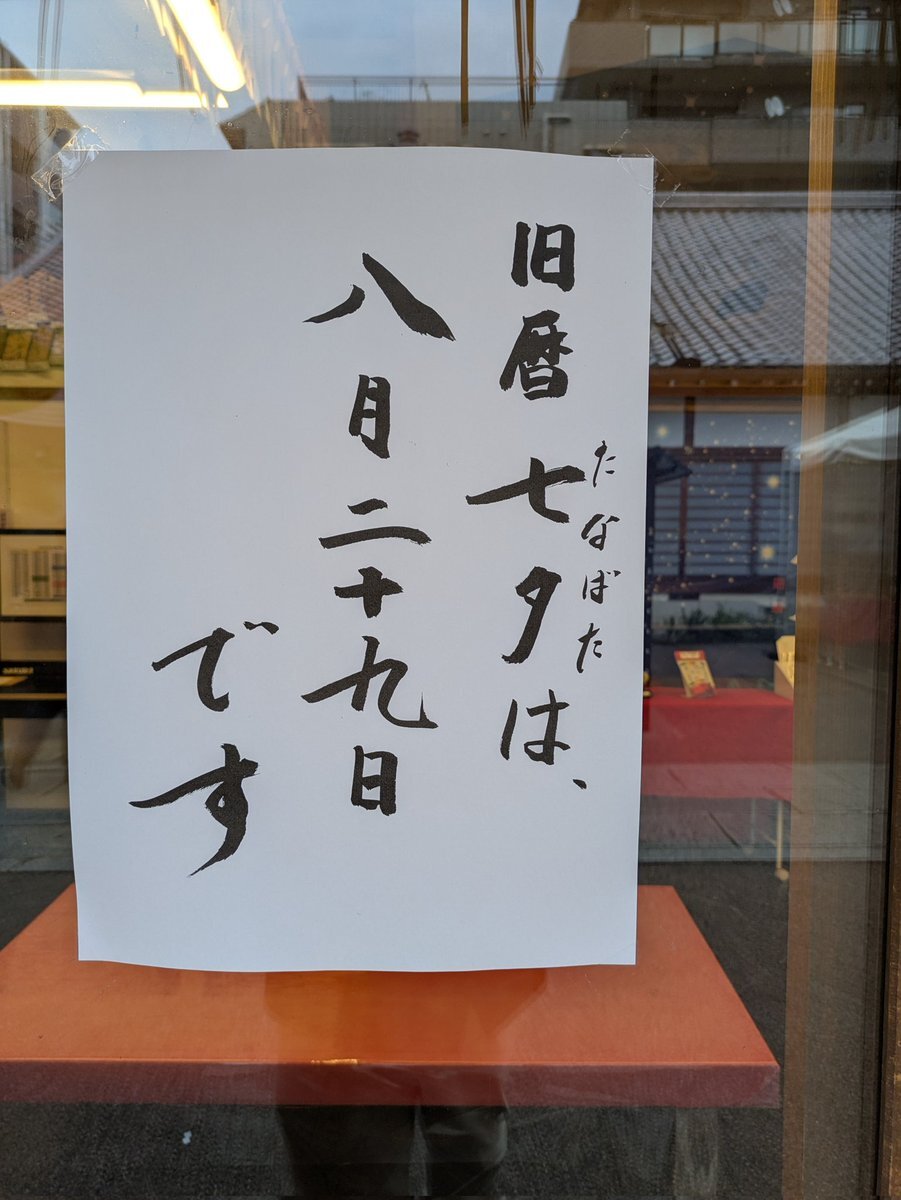 旧暦七夕は、
たなばた
八月二十九日
です